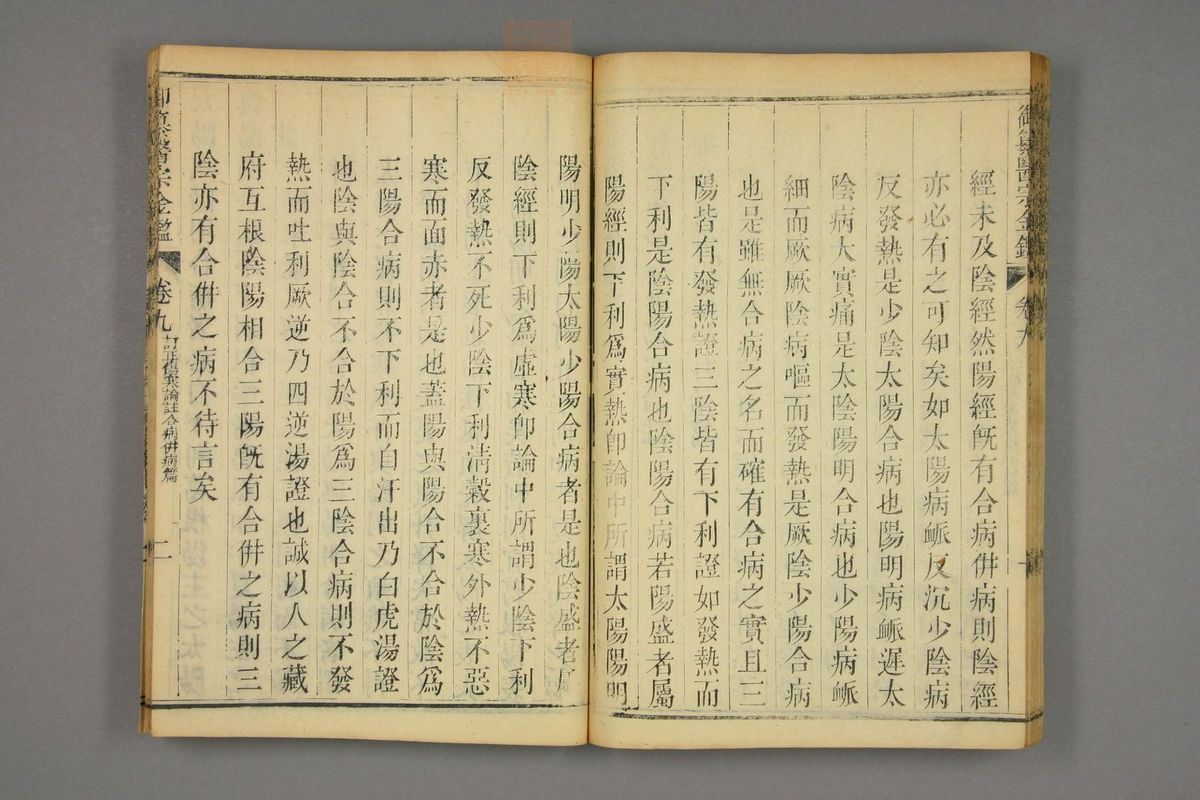 御纂醫宗金鑑 卷九
經未及陰經然陽經旣有合病倂病則陰經
亦必有之可知矣如太陽病𧖴反沉少陰病
反發熱是少陰太陽合病也陽明病𧖴遲太
陰病大實痛是太陰陽明合病也少陽病𧖴
細而厥厥陰病嘔而發熱是厥陰少陽合病
也是雖無合病之名而確有合病之實且三
陽皆有發熱證三陰皆有下利證如發熱而
下利是陰陽合病也陰陽合病若陽盛者屬
陽經則下利爲實熱卽論中所謂太陽陽明
陽明少陽太陽少陽合病者是也陰盛者屬
陰經則下利爲虛寒卽論中所謂少陰下利
反發熱不死少陰下利淸穀裏寒外熱不惡
寒而面赤者是也蓋陽與陽合不合於陰爲
三陽合病則不下利而自汗出乃白虎湯證
也陰與陰合不合於陽爲三陰合病則不發
熱而吐利厥逆乃四逆湯證也誠以人之藏
府互根陰陽相合三陽旣有合倂之病則三
陰亦有合倂之病不待言矣
御纂醫宗金鑑 卷九 訂正傷寒論註合病倂病篇 二